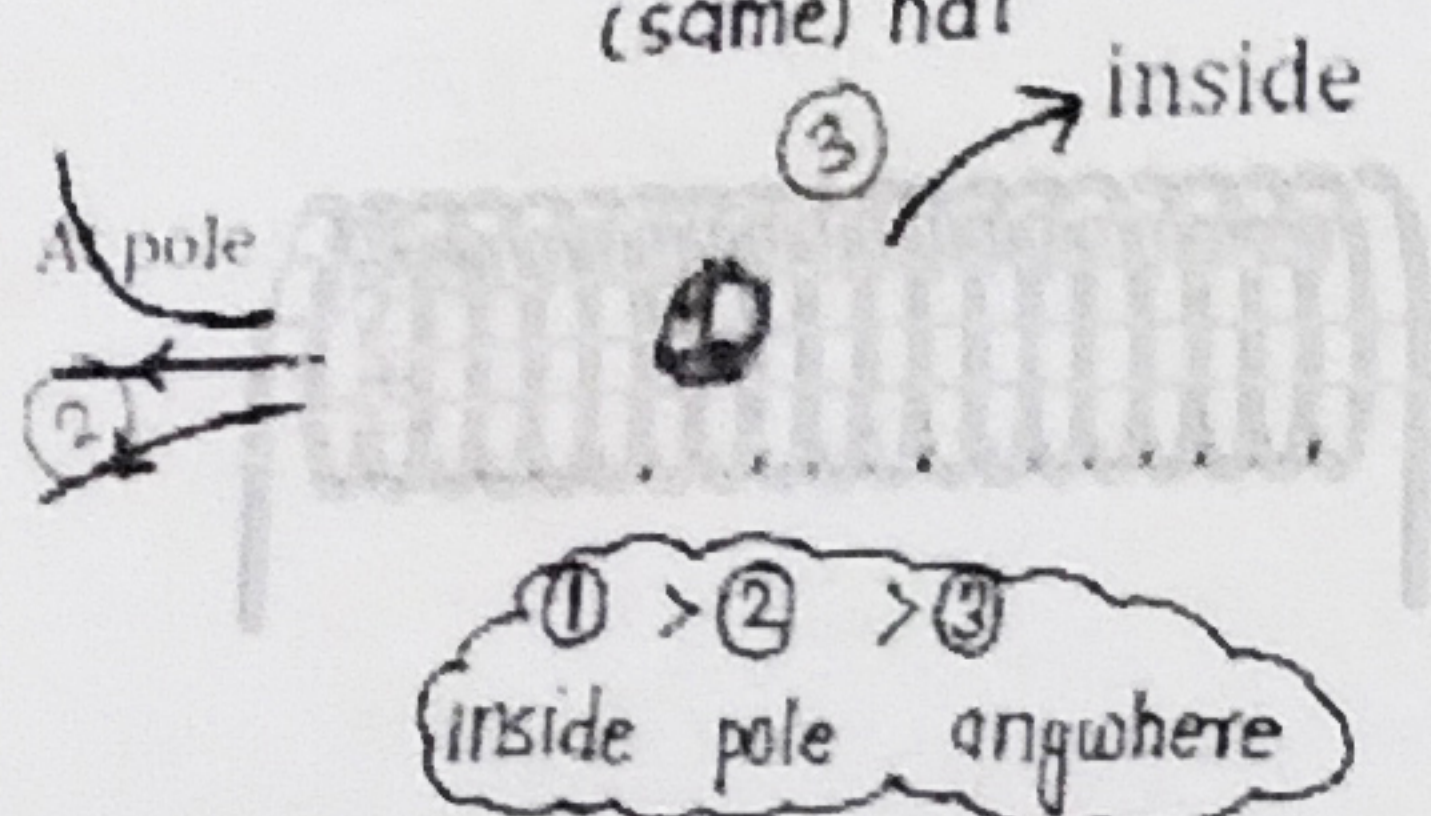 (same)
③ inside
At pole
①
②
① > ② > ③
inside pole anywhere